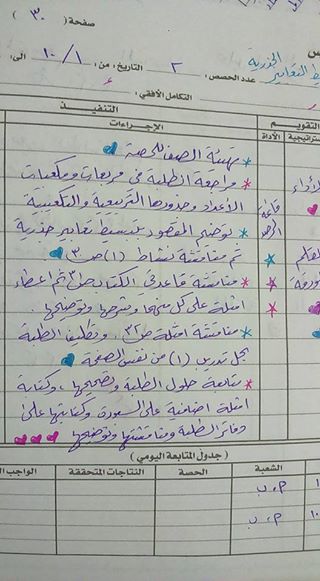 صفحة ( ٣٠ )
الجذرية
عدد الحصص: ٢ التاريخ: من: ١٠/١ الى:
التكامل الأفقي:
التقويم التنفيذ
الأداة الإجراءات
* تهيئة الصف للحصة
* مراجعة الطلبة في مربعات ومكعبات
الأعداد وجذورها التربيعية والتكعيبية
* توضيح المقصود بتبسيط تعابير جذرية
ثم مناقشة نشاط (١) ص ٣
* مناقشة قاعدتي الكتاب ص ٣١ ثم اعطاء
امثلة على كل منهما وشرحها وتوضيحها.
* مناقشة امثلة ص ٣٢، وتكليف الطلبة
بحل تدريب (١) من نفس الصفحة
* متابعة حلول الطلبة وتصحيحها، وكتابة
امثلة اضافية على السبورة وكتابتها على
دفاتر الطلبة ومناقشتها وتوضيحها
قائمة
الرصد
( جدول المتابعة اليومي )
الشعبة الحصة النتاجات المتحققة الواجب
٢، ب
٢، ب